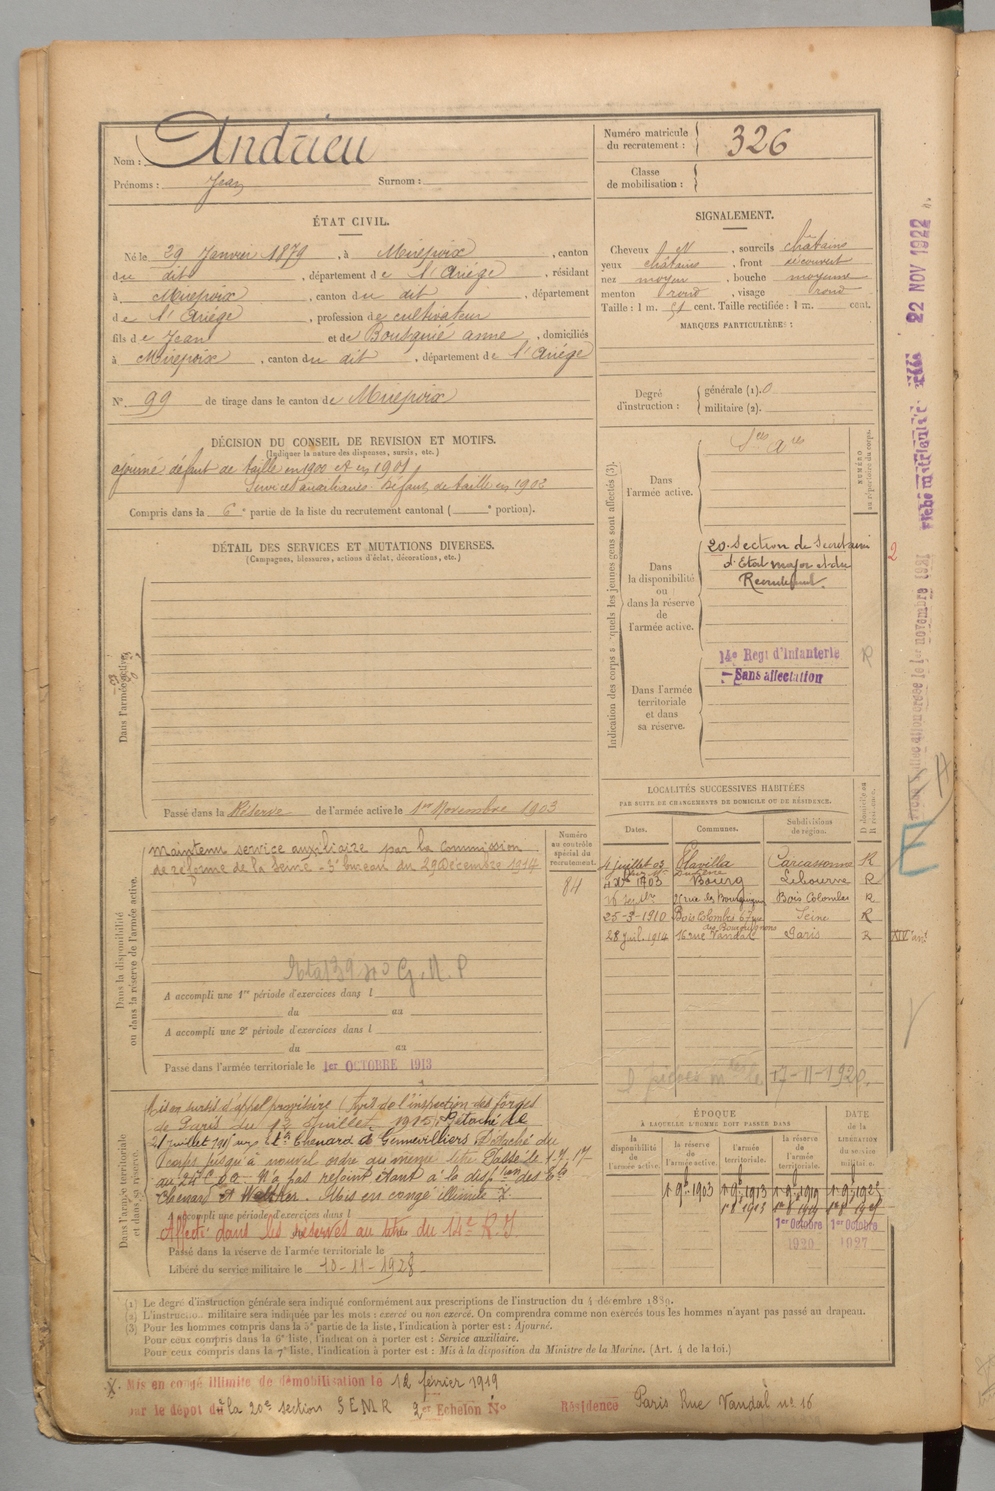 Nom : Andrieu
Prénoms : Jean Surnom :
Numéro matricule du recrutement : 326
Classe de mobilisation :
ÉTAT CIVIL.
Né le 29 Janvier 1879, à Mirepoix, canton
du dit, département de l'Ariège, résidant
à Mirepoix, canton du dit, département
de l'Ariège, profession de cultivateur
fils de Jean et de Bousquié anne, domiciliés
à Mirepoix, canton du dit, département de l'Ariège
N° 99 de tirage dans le canton de Mirepoix
SIGNALEMENT.
Cheveux ch, sourcils châtains
yeux châtains, front découvert
nez moyen, bouche moyenne
menton rond, visage rond
Taille : 1 m. 51 cent. Taille rectifiée : 1 m. cent.
MARQUES PARTICULIÈRES :
Degré d'instruction : générale (1). 0
militaire (2).
DÉCISION DU CONSEIL DE REVISION ET MOTIFS.
(Indiquer la nature des dispenses, sursis, etc.)
ajourné défaut de taille en 1900 et en 1901
Services auxiliaires. Défaut de taille en 1902
Compris dans la 6e partie de la liste du recrutement cantonal ( e portion).
DÉTAIL DES SERVICES ET MUTATIONS DIVERSES.
(Campagnes, blessures, actions d'éclat, décorations, etc.)
Dans l'armée active.
Passé dans la Réserve de l'armée active le 1er Novembre 1903
Indication des corps auxquels les jeunes gens sont affectés (3).
NUMÉRO au répertoire du corps.
Dans l'armée active.
Ses aes
Dans la disponibilité ou dans la réserve de l'armée active.
20. Section de Secrétaires
d'Etat major et du
Recrutement.
2
Dans l'armée territoriale et dans sa réserve.
14e Regt d'Infanterie
Sans affectation
R
22 NOV 1922
LOCALITÉS SUCCESSIVES HABITÉES
PAR SUITE DE CHANGEMENTS DE DOMICILE OU DE RÉSIDENCE.
Dates. Communes. Subdivisions de région. D domicile ou R résidence.
4 juillet 03 Plavilla Carcassonne R
1903 Bourg Libourne R
Bois Colombes R
25-3-1910 Bois Colombes 67 rue des Bourguignons Seine R
28 Juil. 1914 16 rue Vandal Paris R
17-11-1920.
Dans la disponibilité ou dans la réserve de l'armée active.
Numéro au contrôle spécial du recrutement.
84
Maintenu service auxiliaire par la Commission
de réforme de la Seine - 3e bureau du 29 Décembre 1914
G.M.P
A accompli une 1re période d'exercices dans l
du au
A accompli une 2e période d'exercices dans l
du au
Passé dans l'armée territoriale le 1er OCTOBRE 1913
Dans l'armée territoriale et dans sa réserve.
Mis en sursis d'appel provisoire (avis de l'inspection des forges
de Paris du 12 Juillet 1915. Détaché le
21 juillet 1915 aux Ets Chenard à Gennevilliers Détaché du
corps jusqu'à nouvel ordre au même titre. Passé le 1-7-17
au N'a pas rejoint étant à la dispon des Ets
Chenard et Walcker. Mis en congé illimité X.
A accompli une période d'exercices dans l
Affecté dans les réserves au titre du 14e R.I
Passé dans la réserve de l'armée territoriale le
Libéré du service militaire le 10-11-1928
ÉPOQUE
À LAQUELLE L'HOMME DOIT PASSER DANS
DATE DE LA LIBÉRATION du service militaire.
la disponibilité de l'armée active. la réserve de l'armée active. l'armée territoriale. la réserve de l'armée territoriale.
1 9bre 1903 1 9bre 1913 1 9bre 1919 1 9bre 1925
1er 8bre 1913 1er 8bre 1919
1er Octobre 1920 1er Octobre 1927
(1) Le degré d'instruction générale sera indiqué conformément aux prescriptions de l'instruction du 4 décembre 1889.
(2) L'instruction militaire sera indiquée par les mots : exercé ou non exercé. On comprendra comme non exercés tous les hommes n'ayant pas passé au drapeau.
(3) Pour les hommes compris dans la 5e partie de la liste, l'indication à porter est : Ajourné.
Pour ceux compris dans la 6e liste, l'indication à porter est : Service auxiliaire.
Pour ceux compris dans la 7e liste, l'indication à porter est : Mis à la disposition du Ministre de la Marine. (Art. 4 de la loi.)
X. Mis en congé illimité de démobilisation le 12 février 1919
par le dépôt de la 20e section S E M R 2e Echelon N° Résidence Paris Rue Vandal n° 16